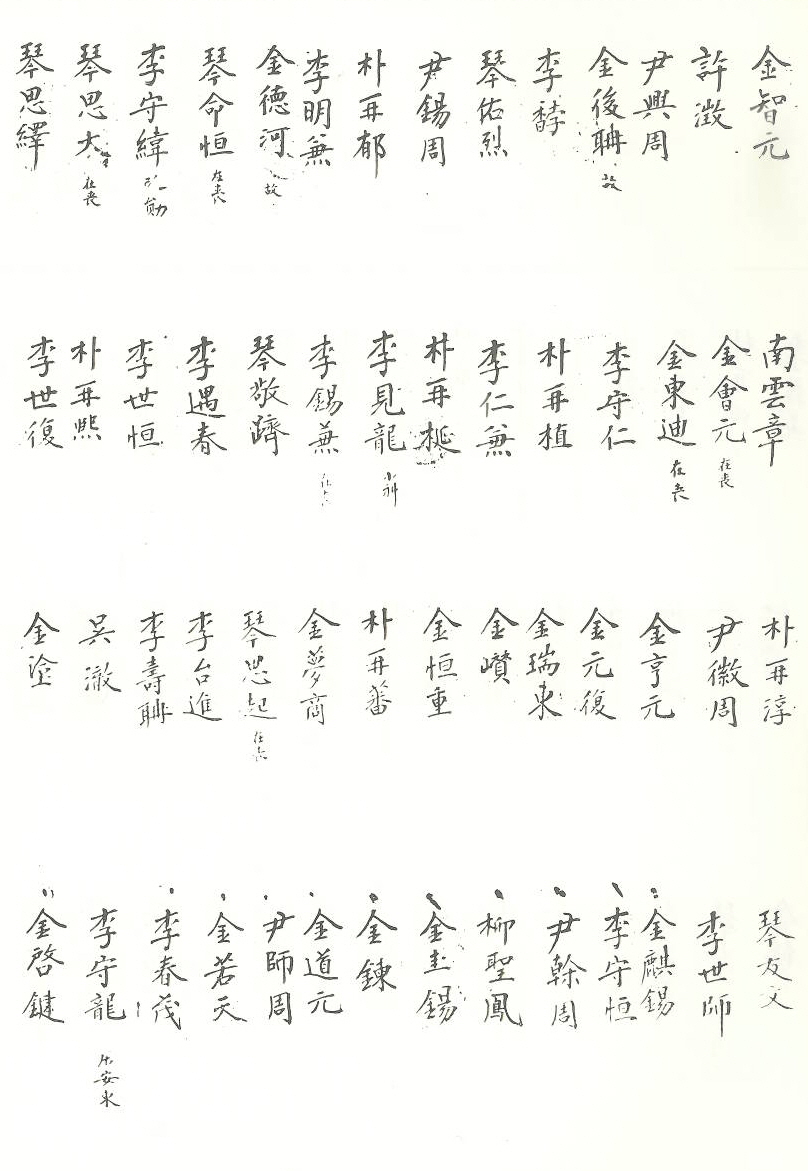 金智元
許澂
尹興周
金後聃 故
李馪
琴佑烈
尹錫周
朴再郁
李明兼
金德河 故
琴命恒 在喪
李守緯
琴思大 在喪
琴思繹
南雲章
金會元 在喪
金東迪 在喪
李守仁
朴再植
李仁兼
朴再梴
李見龍 小科
李錫兼
琴敬躋
李遇春
李世恒
朴再熙
李世復
朴再淳
尹徽周
金亨元
金元復
金瑞東
金巑
金恒重
朴再蕃
金夢商
琴思起 在喪
李台進
李壽聃
吳澈
金塗
琴友文
李世師
金麒錫
李守恒
尹榦周
柳聖鳳
金圭錫
金鍊
金道元
尹師周
金若天
李春茂
李守龍
金啓鍵